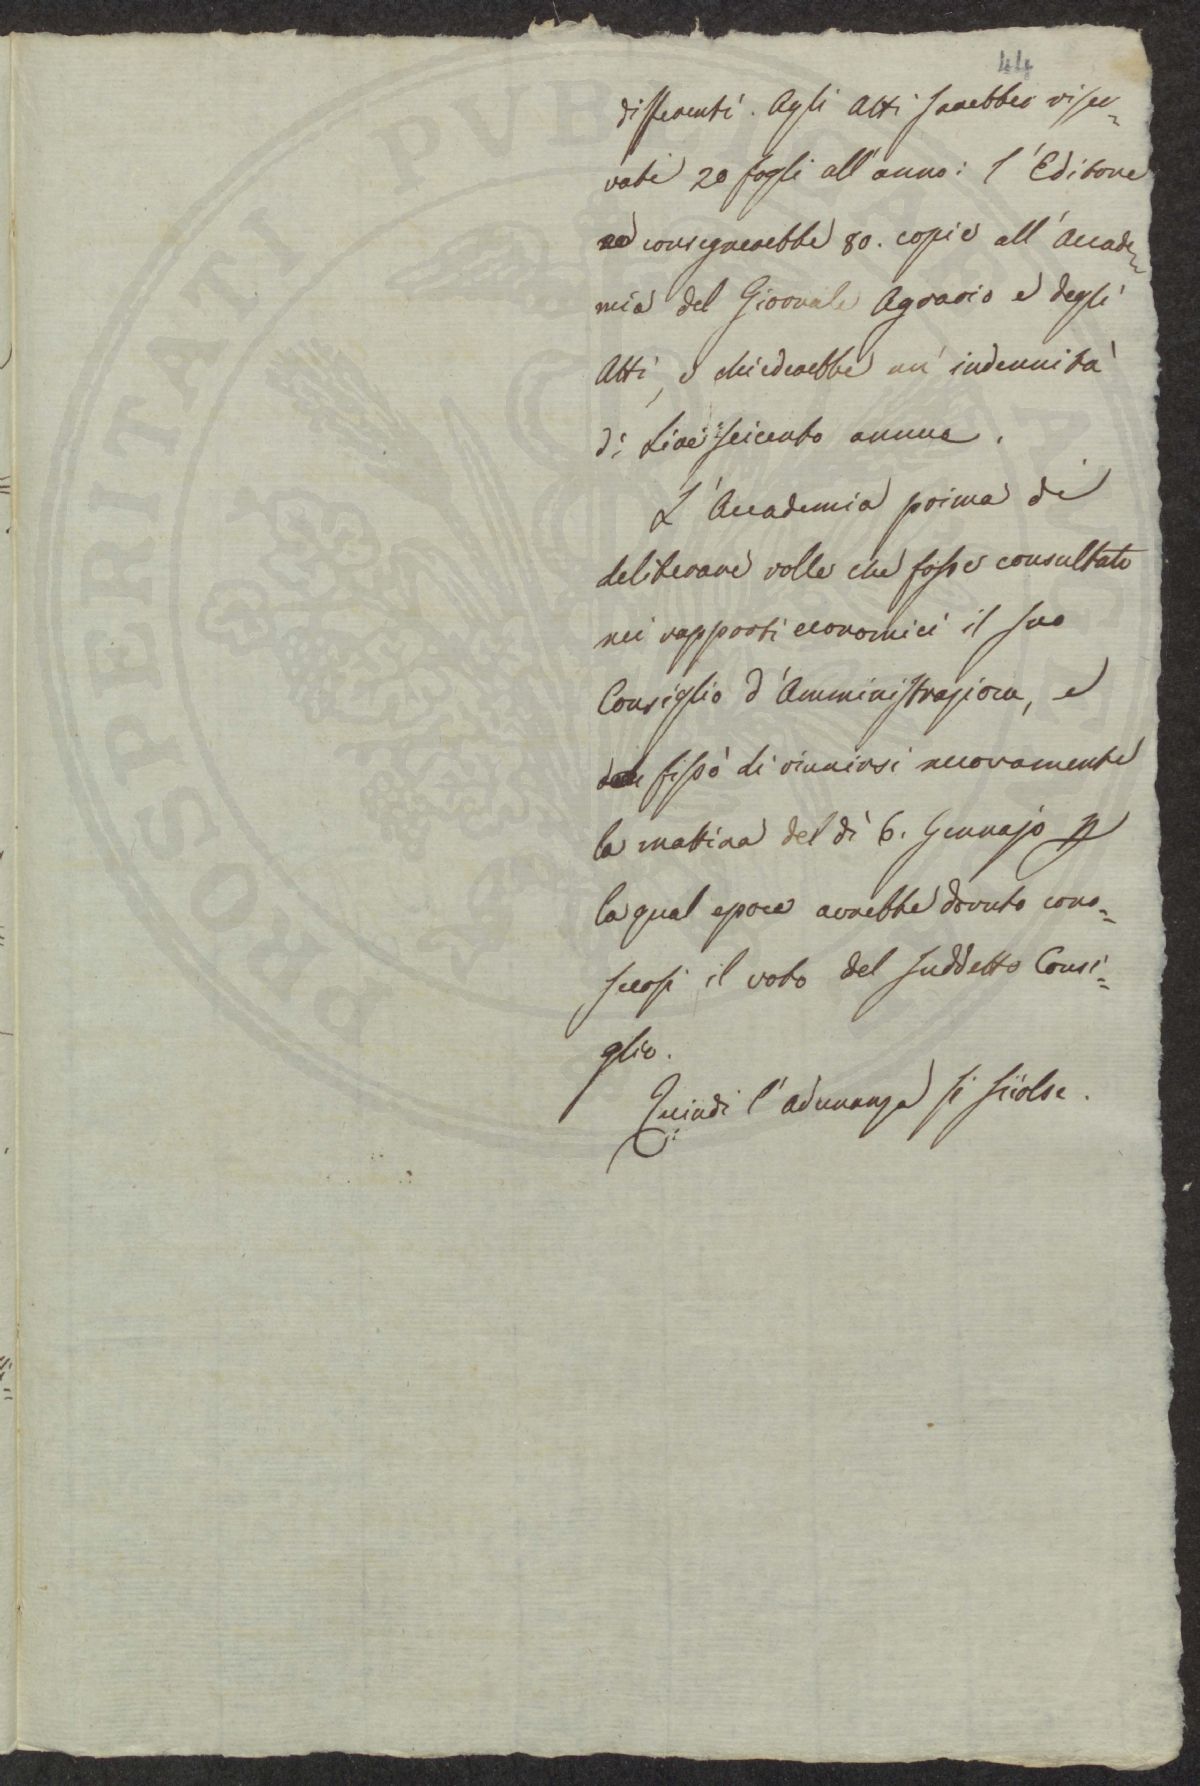 44
differenti. Agli Atti sarebber riser=
vati 20 fogli all'anno: l'Editore
ne consegnerebbe 80. copie all'Accade=
mia del Giornale Agrario e degli
Atti, e chiederebbe un'indennità
di Lire seicento annue.
L'Accademia prima di
deliberare volle che fosse consultato
nei rapporti economici il suo
Consiglio d'Amministrazione, e
fissò di riunirsi nuovamente
la mattina del dì 6. Gennajo p
la qual epoca avrebbe dovuto cono=
scersi il voto del suddetto Consi=
glio.
Quindi l'adunanza si sciolse.
PROSPERITATI PUBLICAE AUGENDAE